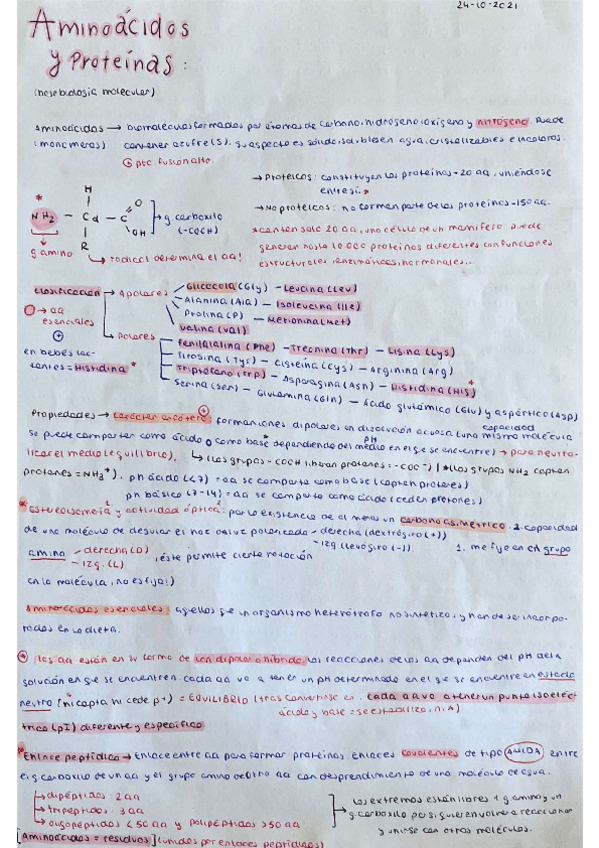 24-10-2021
Aminoácidos
y Proteínas:
molecular)
Aminoácidos → biomoléculas formadas por átomos de carbono, hidrógeno, oxígeno y nitrógeno. Puede
(monómeros) contener azufre (S). Su aspecto es sólido, solubles en agua, cristalizables e incoloros.
pto fusión alto.
→ Proteicos: constituyen las proteínas - 20 aa, uniéndose
entre sí. *
→ No proteicos: no forman parte de las proteínas - 150 aa.
* con tan solo 20 aa, una célula de un mamífero puede
generar hasta 10 000 proteínas diferentes con funciones
estructurales, enzimáticas, hormonales...
H
NH2 - Cα - C
O
OH
R
g. carboxilo
(-COOH)
g amino
radical determina el aa!
Clasificación → Apolares
Glicocola (Gly) - Leucina (Leu)
Alanina (Ala) - Isoleucina (Ile)
Prolina (P) - Metionina (Met)
Valina (Val)
→ aa
esenciales
en bebés lac-
tantes = Histidina *
→ Polares
Fenilalalina (Phe) - Treonina (Thr) - Lisina (Lys)
Tirosina (Tys) - Cisteína (Cys) - Arginina (Arg)
Triptófano (Trp) - Asparagina (Asn) - Histidina (His) *
Serina (Ser) - Glutamina (Gln) - Ácido glutámico (Glu) y aspártico (Asp)
Propiedades → Carácter anfótero: forman iones dipolares en disolución acuosa (una misma molécula
capacidad
se puede comportar como ácido o como base dependiendo del pH medio en el q se encuentre) → para neutra-
lizar el medio (equilibrio). → (los grupos -COOH liberan protones = -COO⁻) / *(los grupos NH2 captan
protones = NH3⁺). pH ácido (<7) = aa se comporta como base (captan protones)
pH básico (7-14) = aa se comporta como ácido (ceden protones)
* Estereoisomería¹ y actividad óptica²: por la existencia de al menos un carbono asimétrico. 2. capacidad
de una molécula de desviar el haz de luz polarizado - derecha (dextrógiro (+))
- izq (levógiro (-))
1. me fijo en el grupo
amino - derecha (D)
- izq. (L)
, éste permite cierta rotación
en la molécula, no es fija!)
Aminoácidos esenciales: aquellos q e un organismo heterótrofo no sintetiza, y han de ser incorpo-
rados en la dieta.
los aa están en su forma de ion dipolar o híbrido. Las reacciones de los aa dependen del pH de la
solución en q se encuentren. Cada aa va a tener un pH determinado en el q se encuentre en estado
neutro (ni capta ni cede p+) = EQUILIBRIO (tras convertirse en ácido y base = se estabiliza, n.A)
cada aa va a tener un punto isoeléc-
trico (pI) diferente y específico
* Enlace peptídico → Enlace entre aa para formar proteínas. Enlaces covalentes de tipo AMIDA entre
el g. carboxilo de un aa y el grupo amino de otro aa con desprendimiento de una molécula de agua.
→ dipéptidos: 2 aa
→ tripéptidos: 3 aa
→ oligopéptidos <50 aa y polipéptidos >50 aa
Los extremos están libres 1 g. amino y un
g. carboxilo por si quieren volver a reaccionar
y unirse con otras moléculas.
[Aminoácidos = residuos] (unidos por enlaces peptídicos)